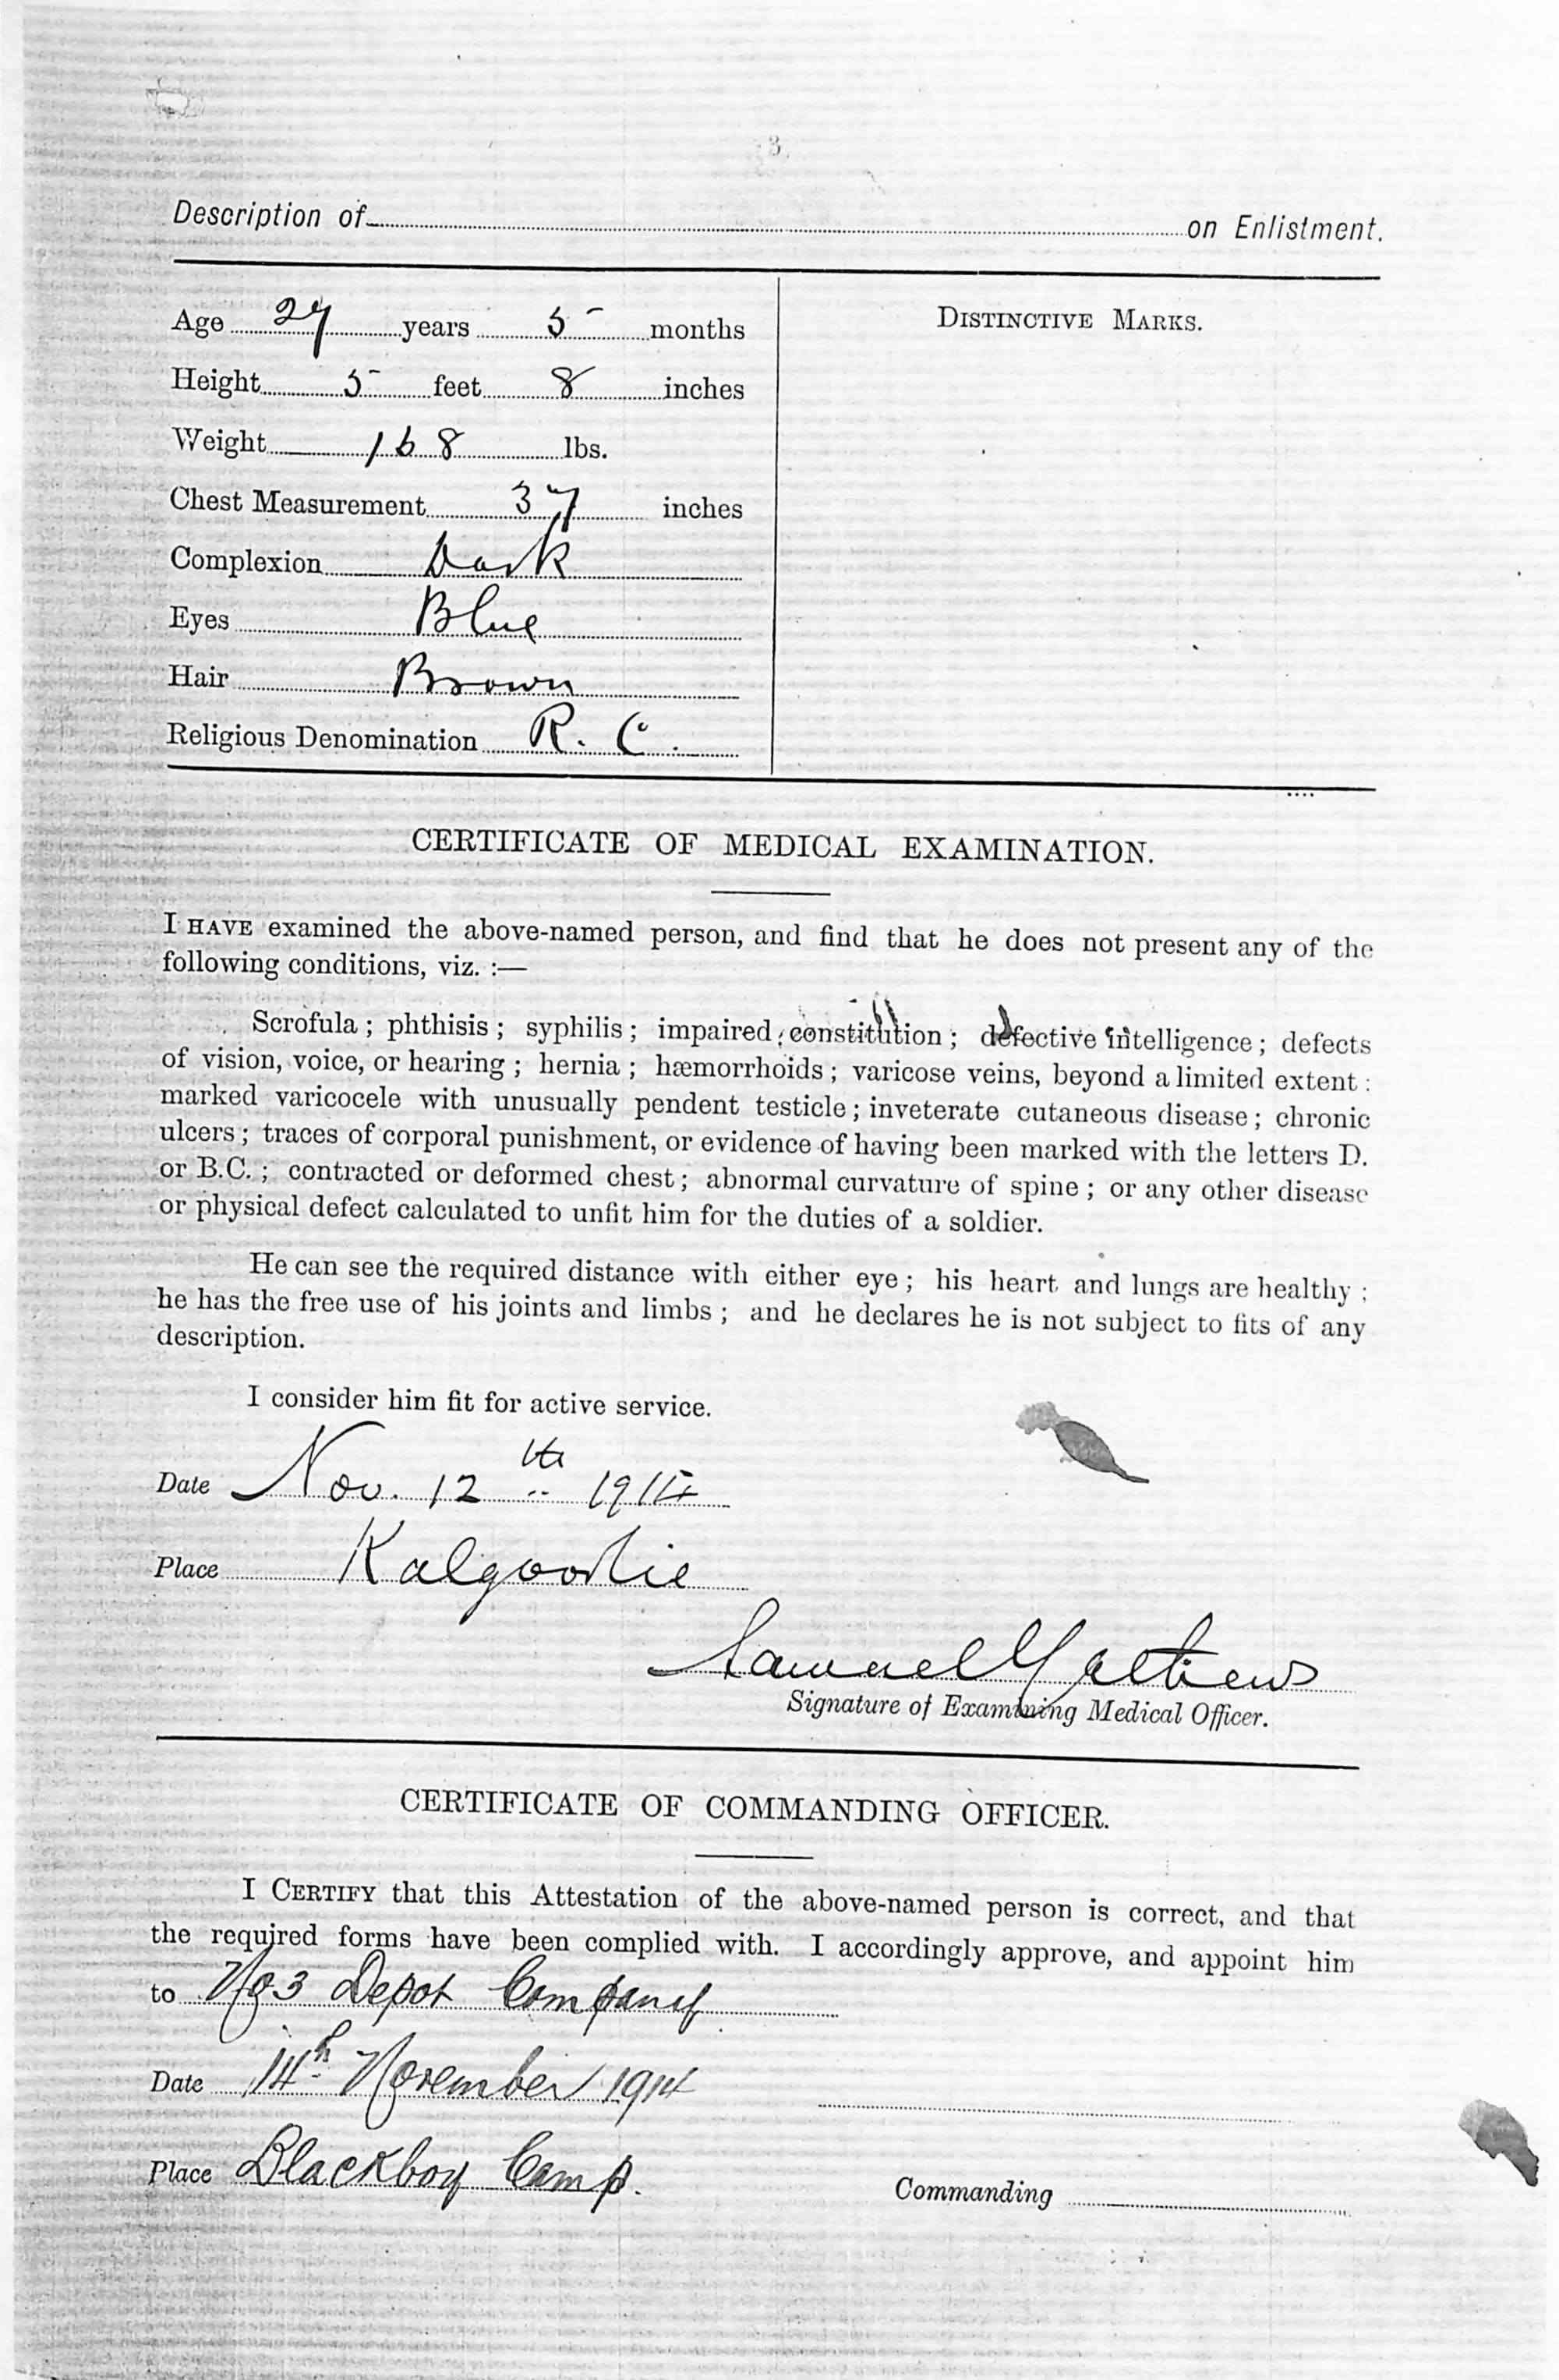 3.
Description of on Enlistment.
Age 27 years 5 months
Height 5 feet 8 inches
Weight 168 lbs.
Chest Measurement 37 inches
Complexion Dark
Eyes Blue
Hair Brown
Religious Denomination R. C.
DISTINCTIVE MARKS.
CERTIFICATE OF MEDICAL EXAMINATION.
I HAVE examined the above-named person, and find that he does not present any of the
following conditions, viz. :—
Scrofula ; phthisis ; syphilis ; impaired constitution ; defective intelligence ; defects
of vision, voice, or hearing ; hernia ; hæmorrhoids ; varicose veins, beyond a limited extent :
marked varicocele with unusually pendent testicle ; inveterate cutaneous disease ; chronic
ulcers ; traces of corporal punishment, or evidence of having been marked with the letters D.
or B.C. ; contracted or deformed chest ; abnormal curvature of spine ; or any other disease
or physical defect calculated to unfit him for the duties of a soldier.
He can see the required distance with either eye ; his heart and lungs are healthy ;
he has the free use of his joints and limbs ; and he declares he is not subject to fits of any
description.
I consider him fit for active service.
Date Nov. 12th 1914
Place Kalgoorlie
Samuel Mathews
Signature of Examining Medical Officer.
CERTIFICATE OF COMMANDING OFFICER.
I CERTIFY that this Attestation of the above-named person is correct, and that
the required forms have been complied with. I accordingly approve, and appoint him
to No 3 Depot Company
Date 14th November 1914
Place Blackboy Camp.
Commanding